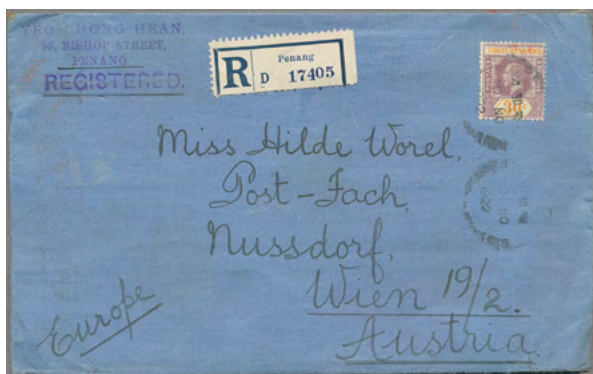 YEO CHONG HEAN,
BISHOP STREET,
PENANG
REGISTERED.
R
Penang
D 17405
30
Miss Hilde Worel,
Post-Fach,
Nussdorf,
Wien 19/2.
Austria.
Europe